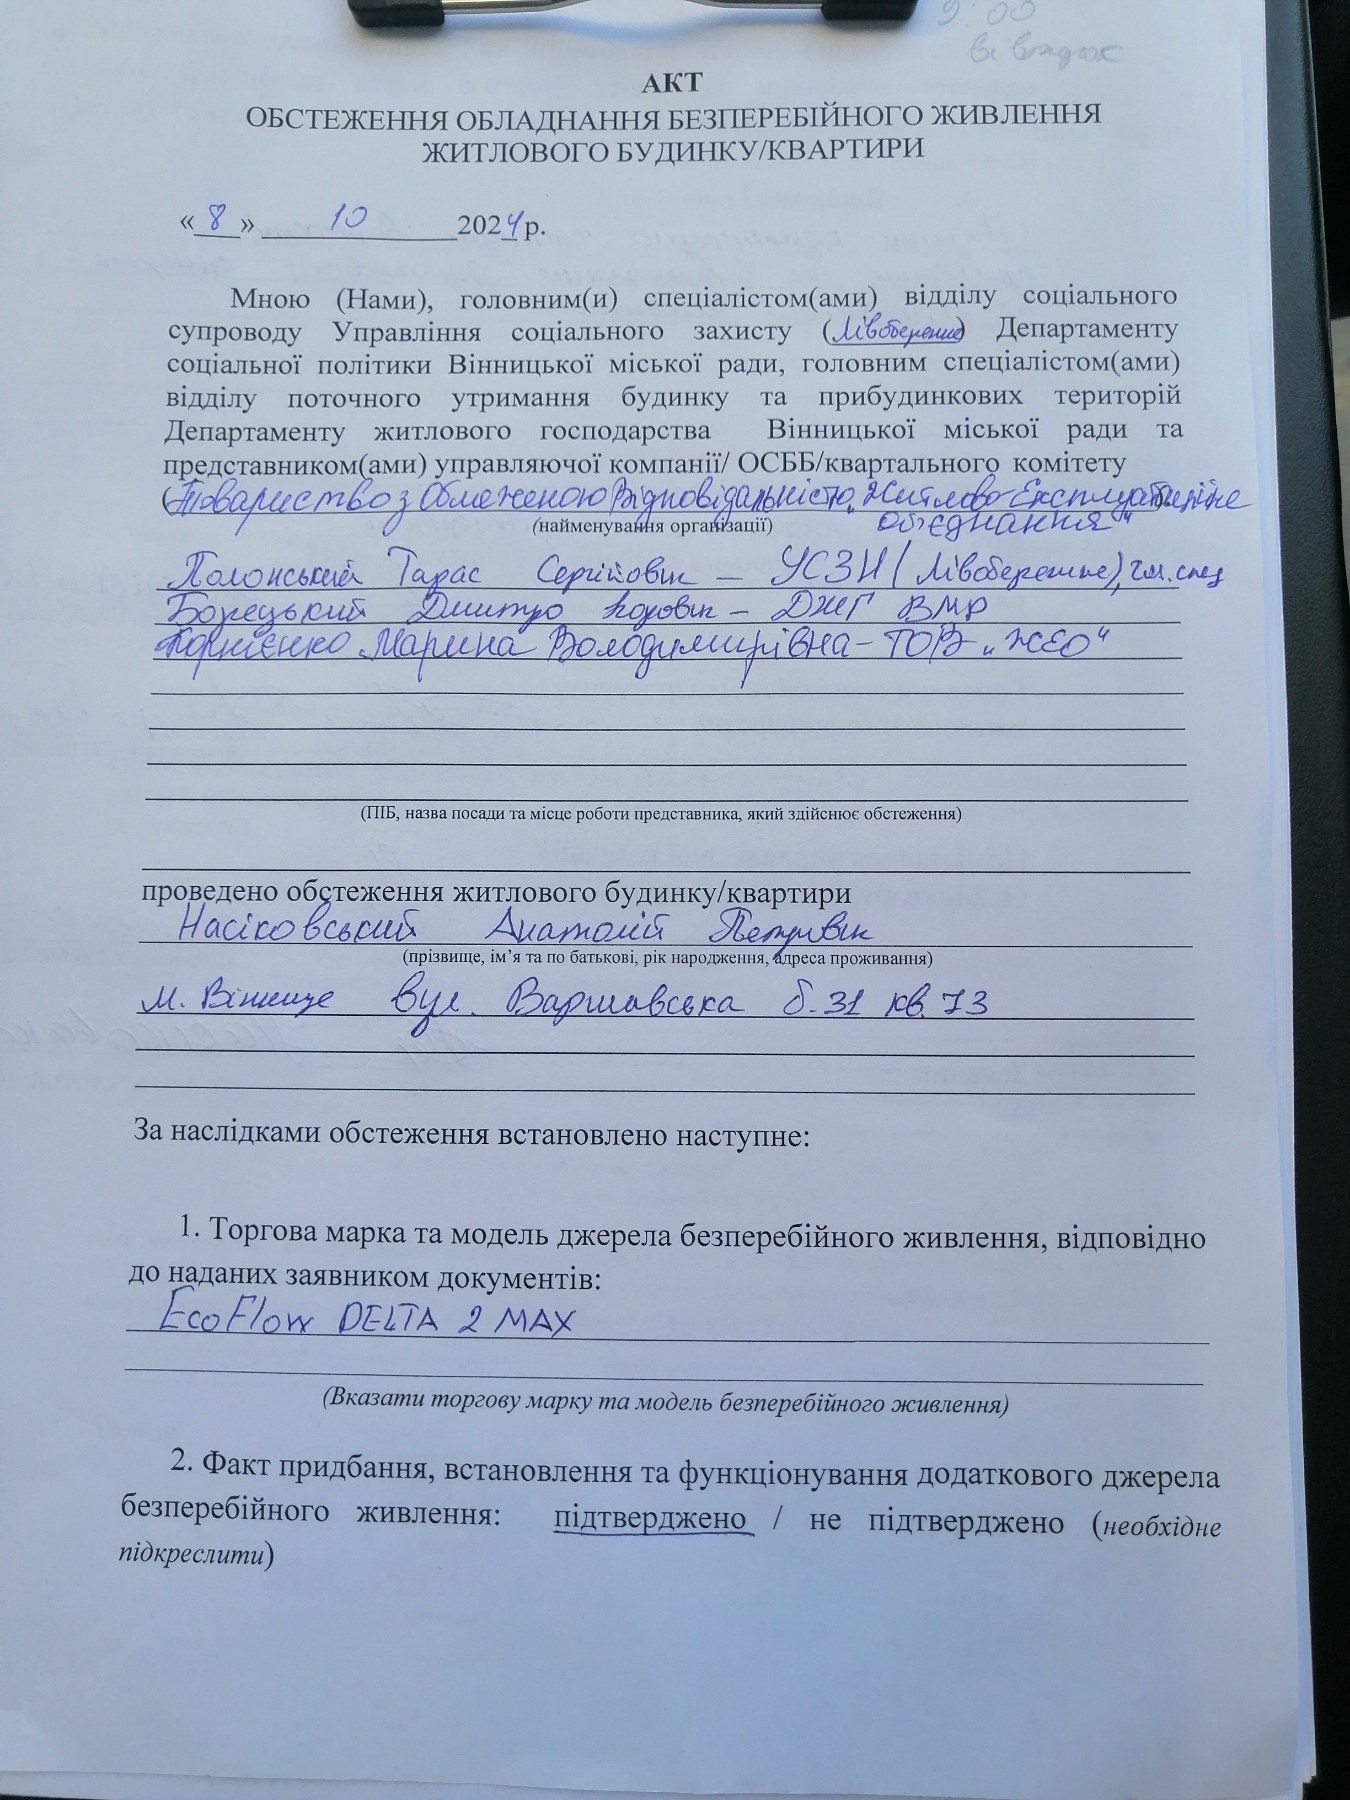 9:00
вівторок
АКТ
ОБСТЕЖЕННЯ ОБЛАДНАННЯ БЕЗПЕРЕБІЙНОГО ЖИВЛЕННЯ
ЖИТЛОВОГО БУДИНКУ/КВАРТИРИ
« 8 » 10 2024 р.
Мною (Нами), головним(и) спеціалістом(ами) відділу соціального
супроводу Управління соціального захисту (Лівобережне) Департаменту
соціальної політики Вінницької міської ради, головним спеціалістом(ами)
відділу поточного утримання будинку та прибудинкових територій
Департаменту житлового господарства Вінницької міської ради та
представником(ами) управляючої компанії/ ОСББ/квартального комітету
(Товариство з Обмеженою Відповідальністю „Житлово-Експлуатаційне
(найменування організації) об'єднання“
Полонський Тарас Сергійович – УСЗН (Лівобережне), гол. спец
Борецький Дмитро – ДЖГ ВМР
Корнієнко Марина Володимирівна – ТОВ „ЖЕО“
(ПІБ, назва посади та місце роботи представника, який здійснює обстеження)
проведено обстеження житлового будинку/квартири
Насіковський Анатолій Петрович
(прізвище, ім’я та по батькові, рік народження, адреса проживання)
м. Вінниця вул. Варшавська б. 31 кв. 73
За наслідками обстеження встановлено наступне:
1. Торгова марка та модель джерела безперебійного живлення, відповідно
до наданих заявником документів:
EcoFlow DELTA 2 MAX
(Вказати торгову марку та модель безперебійного живлення)
2. Факт придбання, встановлення та функціонування додаткового джерела
безперебійного живлення: підтверджено / не підтверджено (необхідне
підкреслити)